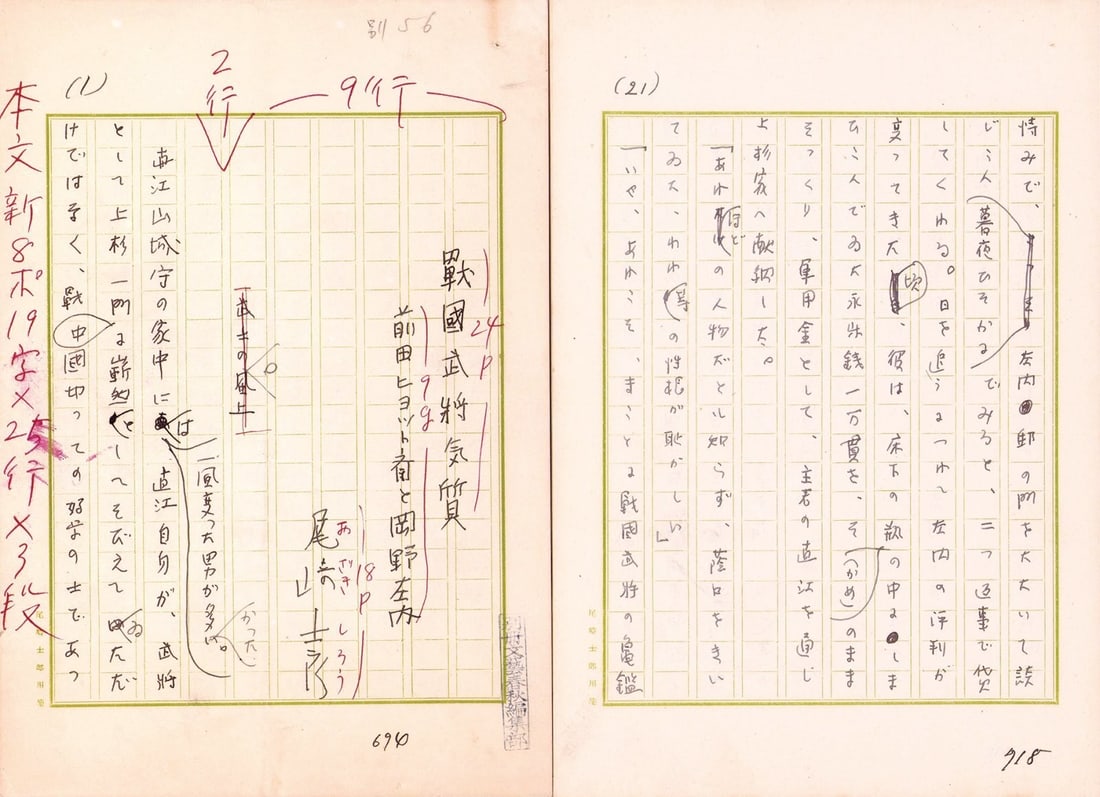 別56
(1)
9行
2行
戰國武将気質
24P
前田ヒョット斎と岡野左内
9g
尾崎士郎
おざきしろう
18P
武士の風上
直江山城守の家中には一風変った男が多い。
かった
直江自身が、武将
として上杉一門に嶄然としてそびえてゐただ
けではなく、戰國中切っての好学の士であっ
本文新8ポ19字×25行×3段
尾崎士郎用箋
別冊文藝春秋編集部
694
(21)
恃みで、
左内邸の門をたたいて談
じこん
暮夜ひそかに
でみると、二つ返事で貸
してくれる。日を追うにつれて左内の評判が
変ってきた頃、彼は、床下の瓶の中にしま
ひこんでゐた永楽銭一万貫を、そ(かめ)のまま
そっくり、軍用金として、主君の直江を通じ
上杉家へ献納した。
「あれほどの人物だとは知らず、蔭口をきい
てゐた、われ等の性根が恥かしい」
「いや、あれこそ、まことに戰國武将の亀鑑
尾崎士郎用箋
918